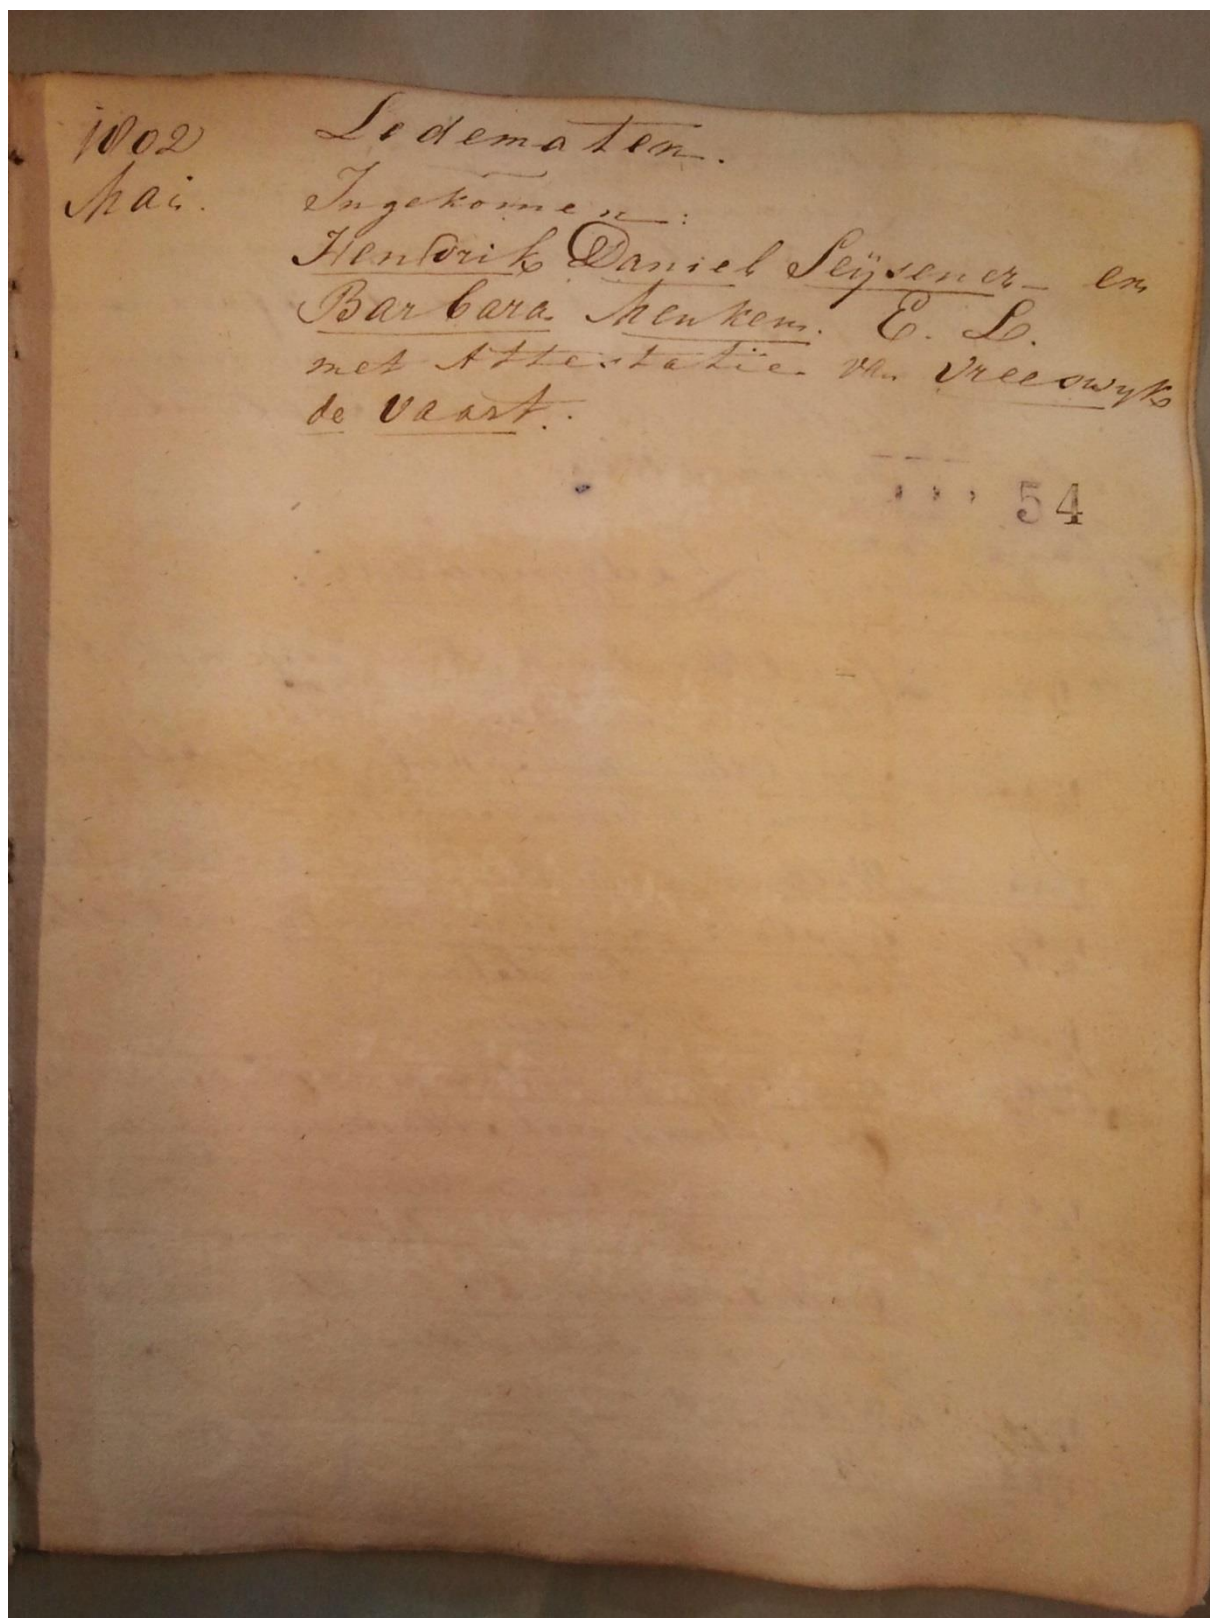 1802 Ledematen.
Mai. Ingekomen:
Hendrik Daniel Seijsener en
Barbara Menken. E. L.
met Attestatie van Vreeswyk
de Vaart.
54